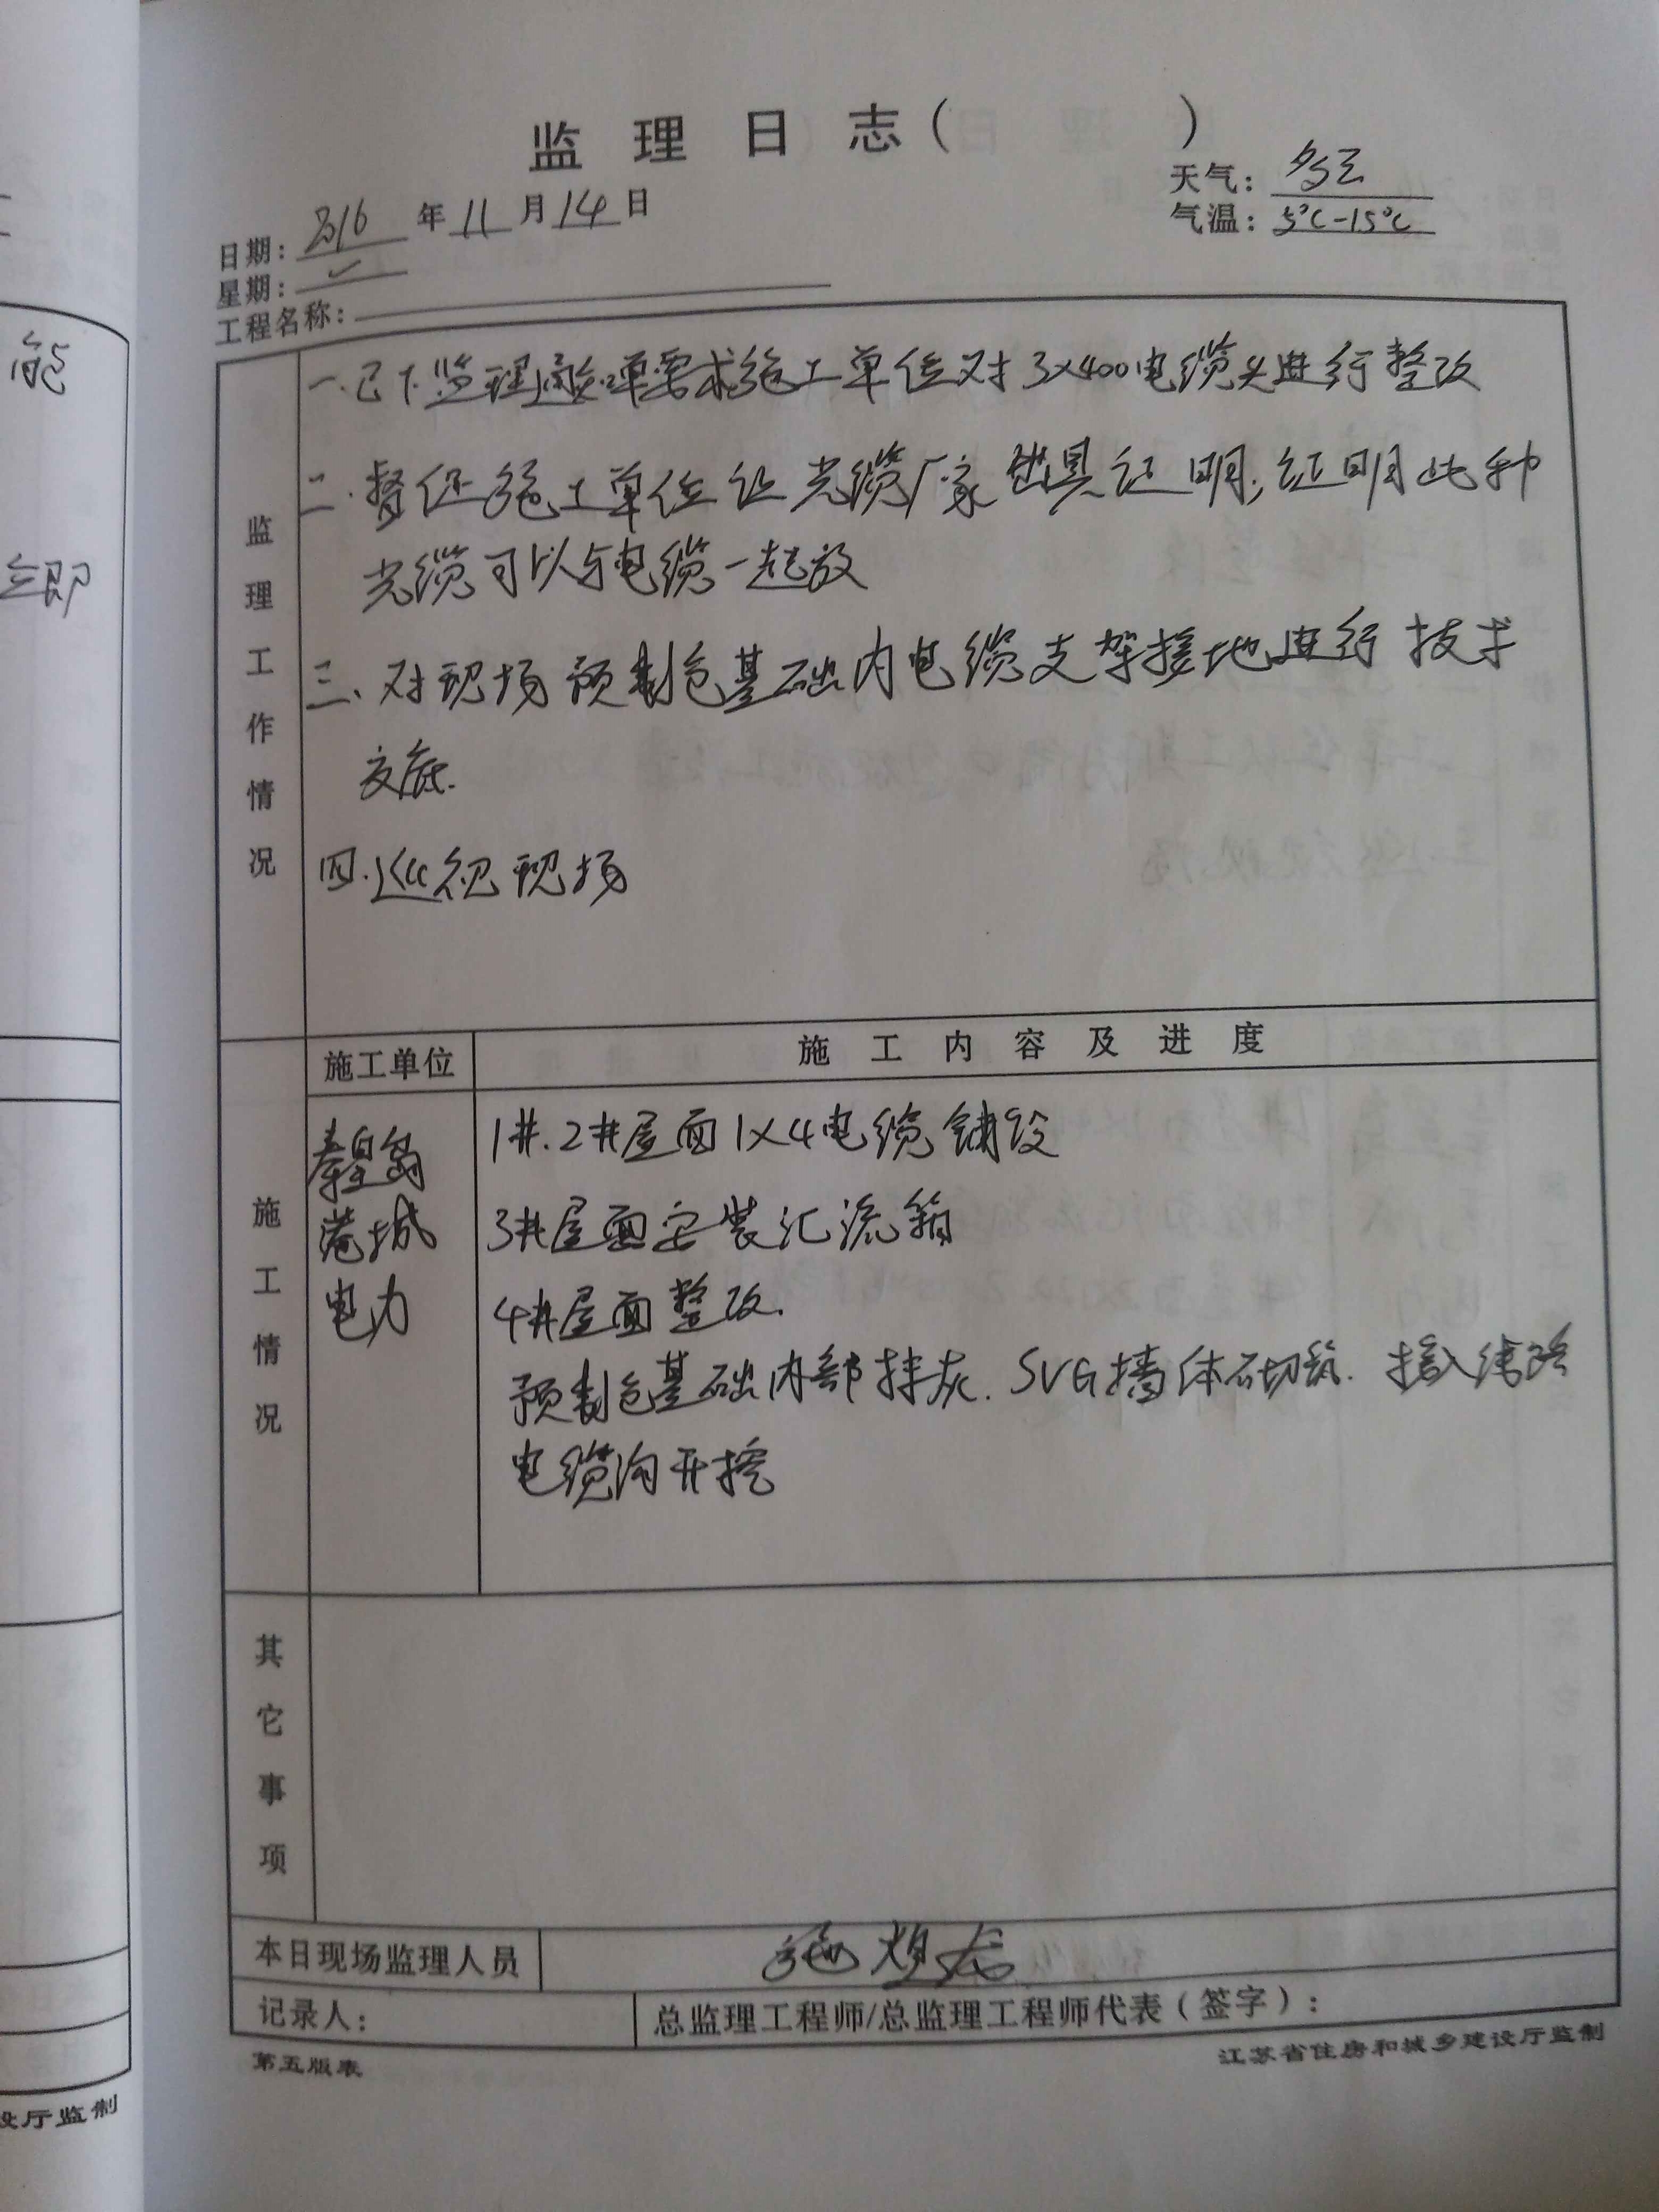 能
立即
设厅监制
监理日志（　　　）
天气：多云
气温：5℃-15℃
日期：2016年11月14日
星期：
工程名称：
监理工作情况
一.已下监理通知单要求施工单位对3×400电缆头进行整改
二.督促施工单位让光缆厂家出具证明,证明此种
光缆可以与电缆一起放
三、对现场预制仓基础内电缆支架接地进行技术
交底.
四.巡视现场
施工情况
施工单位
施工内容及进度
秦皇岛
港城
电力
1#.2#屋面1×4电缆铺设
3#屋面安装汇流箱
4#屋面整改.
预制仓基础内部抹灰.SVG墙体砌筑.接入线路
电缆沟开挖
其它事项
本日现场监理人员
施
记录人：
总监理工程师/总监理工程师代表（签字）：
第五版表
江苏省住房和城乡建设厅监制